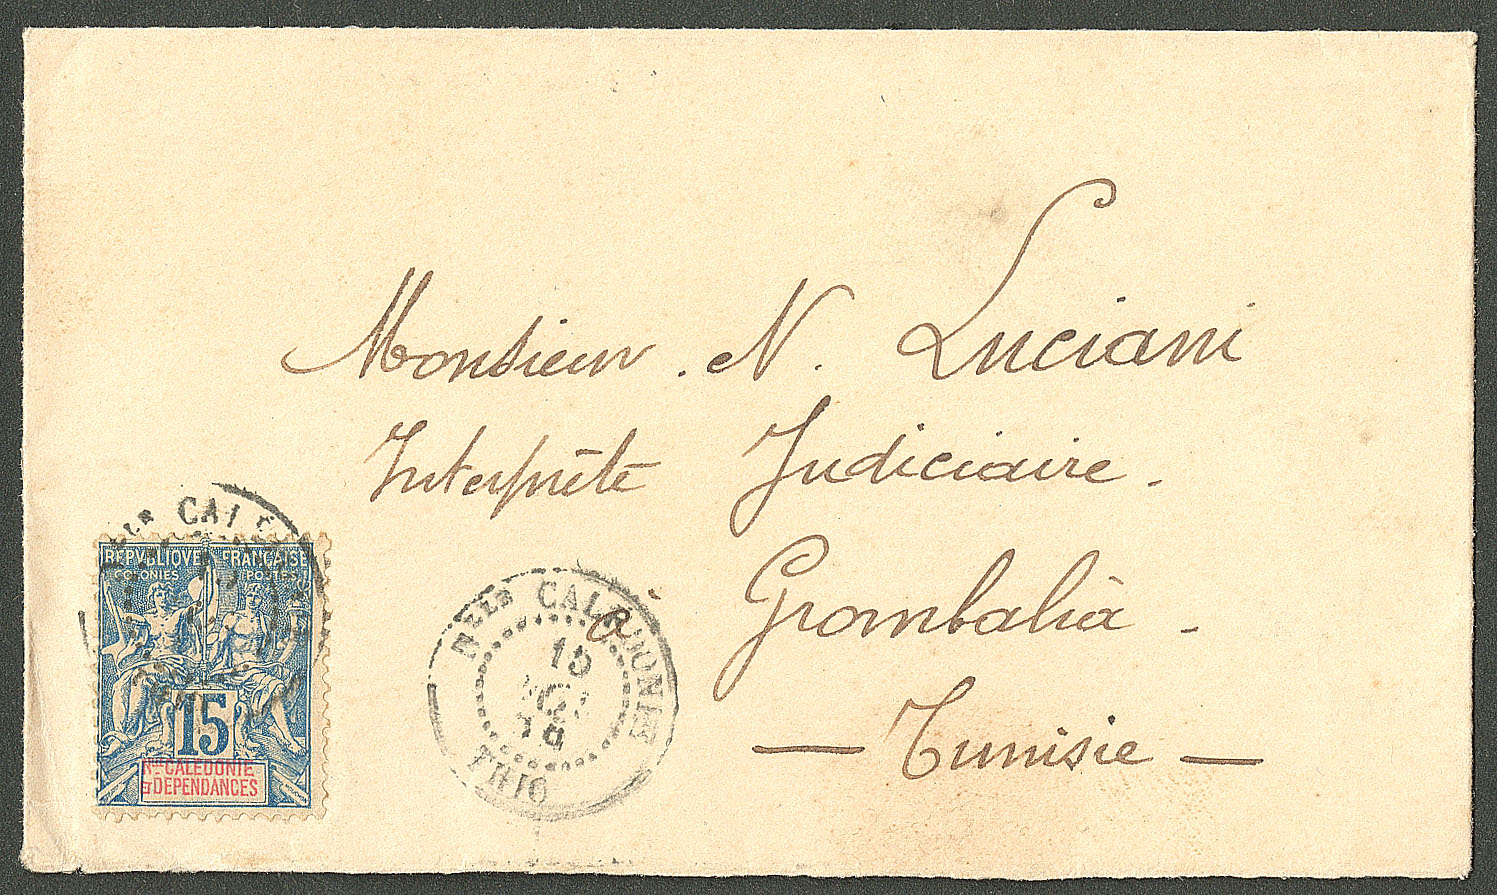 Monsieur . N . Luciani
Interprète Judiciaire .
à Grombalia -
— Tunisie —
REPVBLIQVE FRANÇAISE
COLONIES POSTES
15
Nlle CALÉDONIE
ET DÉPENDANCES
Nelle CALEDONIE
15
THIO
Nelle CALED